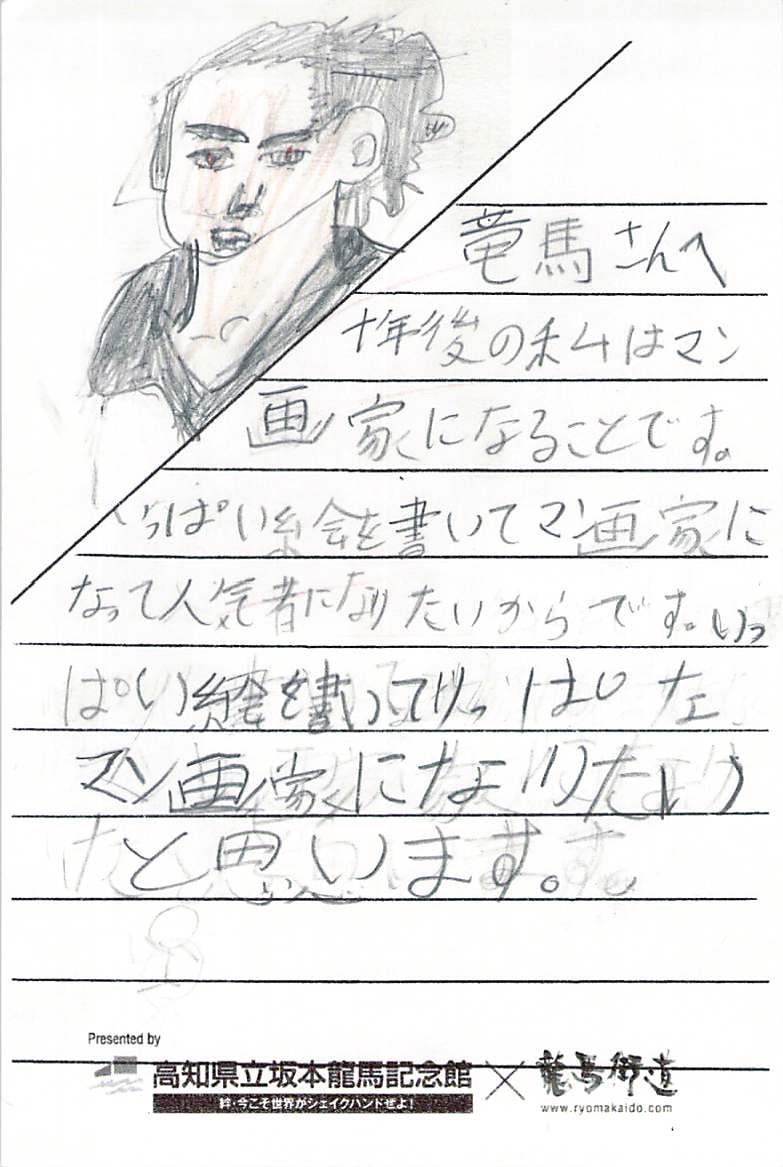 竜馬さんへ
十年後の私はマン
画家になることです。
いっぱい絵を書いてマン画家に
なって人気者になりたいからです。いっ
ぱい絵を書いてりっぱな
マン画家になりたい
と思います。
Presented by
高知県立坂本龍馬記念館×龍馬街道
絆・今こそ世界がシェイクハンドぜよ!
www.ryomakaido.com